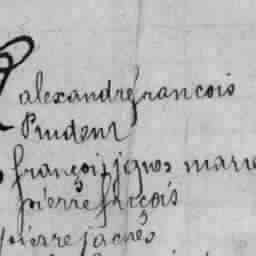 alexandre francois
Prudent
françois jgnos marie
pierre fricois
pierre jacnes